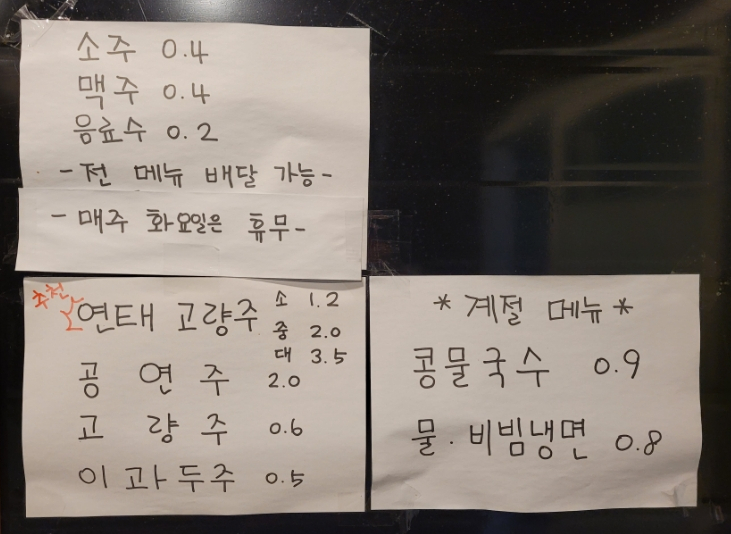 소주 0.4
맥주 0.4
음료수 0.2
-전 메뉴 배달 가능-
-매주 화요일은 휴무-
추천
연태 고량주 소 1.2
중 2.0
대 3.5
공연주 2.0
고량주 0.6
이과두주 0.5
*계절 메뉴*
콩물국수 0.9
물·비빔냉면 0.8